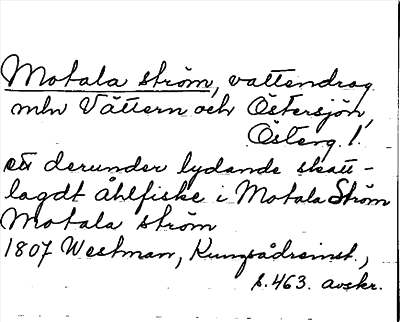 Motala ström, vattendrag
mln Vättern och Östersjön,
Österg. l.
ett derunder lydande skatt-
lagdt åhlfiske i Motala Ström
Motala ström
1807 Westman, Kungsådreinst.,
s. 463. avskr.